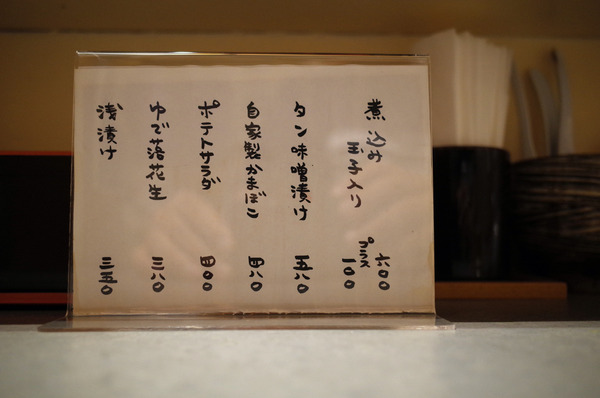 煮込み 六〇〇
玉子入り プラス一〇〇
タン味噌漬け 五八〇
自家製かまぼこ 四八〇
ポテトサラダ 四〇〇
ゆで落花生 三八〇
浅漬け 三五〇